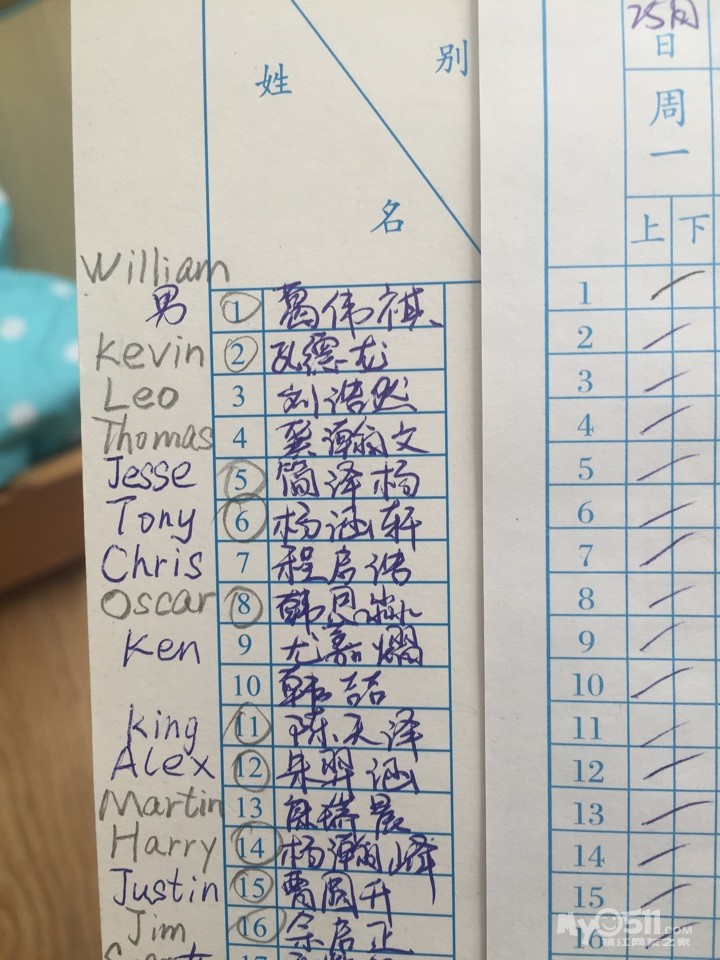 别
姓
名
25周
日
周
一
上 下
William
男 1 葛伟祺 1
Kevin 2 德龙 2
Leo 3 刘浩然 3
Thomas 4 龚瀚文 4
Jesse 5 简泽杨 5
Tony 6 杨涵轩 6
Chris 7 程启浩 7
Oscar 8 韩恩淼 8
Ken 9 尤嘉熠 9
10 韩喆 10
King 11 陈天泽 11
Alex 12 朱羿涵 12
Martin 13 瑞晨 13
Harry 14 杨瀚峰 14
Justin 15 曹圆升 15
Jim 16 启正 16
17
My0511.com
镇江网友之家